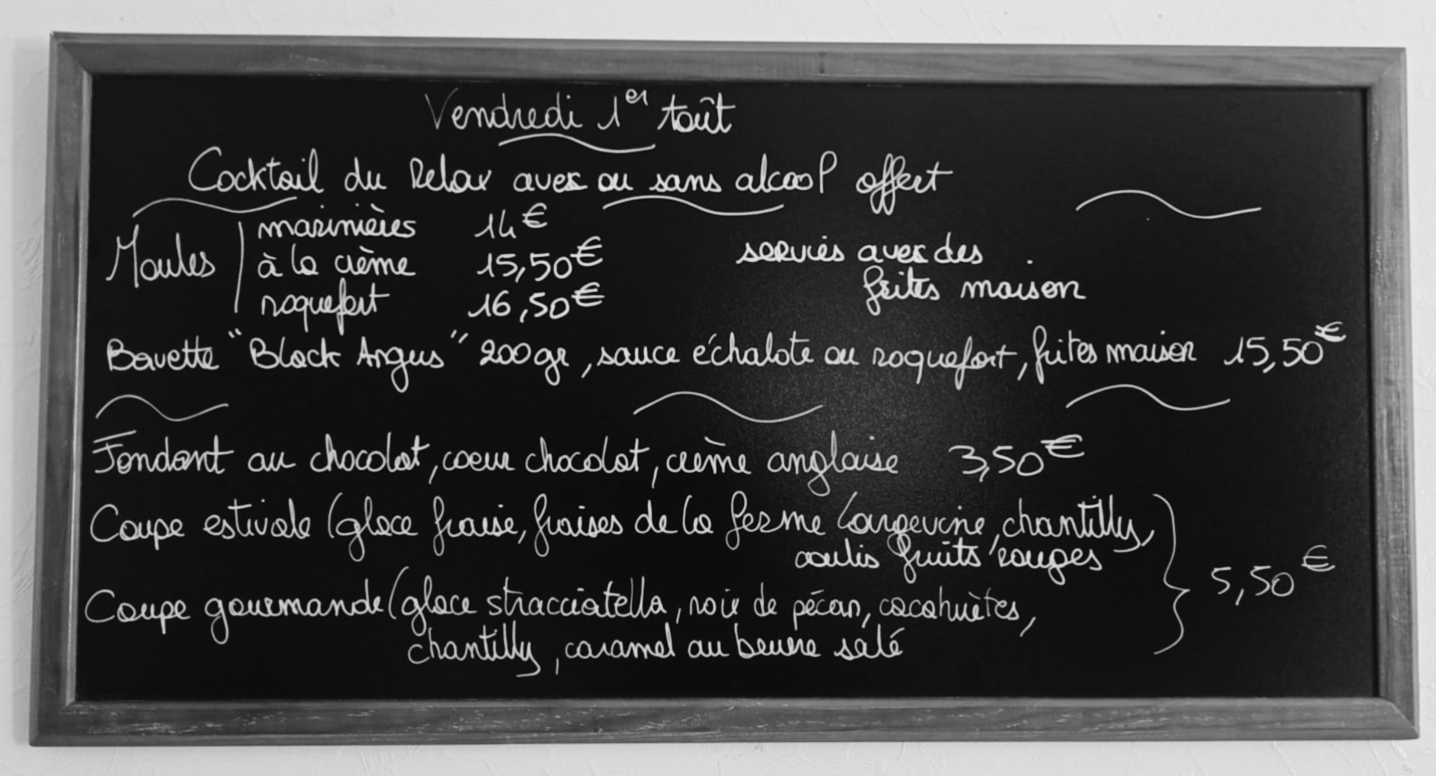 Vendredi 1er Août
Cocktail du Relax avec ou sans alcool offert
Moules
marinières 14€
à la crème 15,50€
roquefort 16,50€
servies avec des
frites maison
Bavette "Black Angus" 200gr, sauce échalote ou roquefort, frites maison 15,50€
Fondant au chocolat, coeur chocolat, crème anglaise 3,50€
Coupe estivale (glace fraise, fraises de la ferme Langevine, chantilly,
coulis fruits rouges
Coupe gourmande (glace stracciatella, noix de pécan, cacahuètes,
chantilly, caramel au beurre salé
5,50€